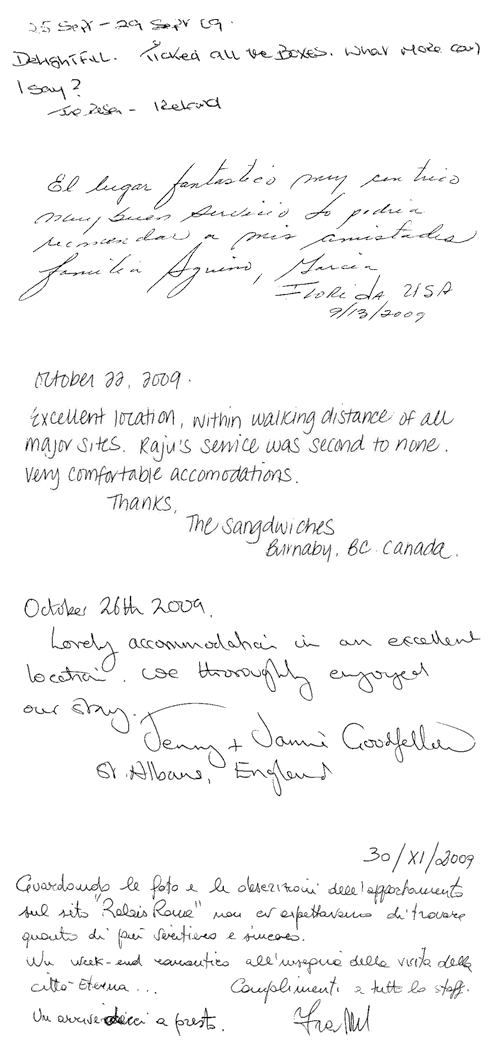 25 Sept - 29 Sept 09.
Delightful. Ticked all the Boxes. What more can
I say?
- Ireland
El lugar fantastico muy centrico
muy buen servicio lo podria
recomendar a mis amistades
familia Aquino, Garcia
Florida, USA
9/13/2009
October 22, 2009.
Excellent location, within walking distance of all
major sites. Raju's service was second to none.
Very comfortable accomodations.
Thanks,
The Sangdwiches
Burnaby, BC. Canada.
October 26th 2009.
Lovely accommodation in an excellent
location. We thoroughly enjoyed
our stay.
Jenny + Jamie Goodfellow
St. Albans, England
30/XI/2009
Guardando le foto e le descrizioni dell'appartamento
sul sito "Relais Rome" non ci aspettavamo di trovare
quanto di più veritiero e sincero.
Un week-end romantico all'insegna della visita della
città Eterna... Complimenti a tutto lo staff.
Un arrivederci a presto.